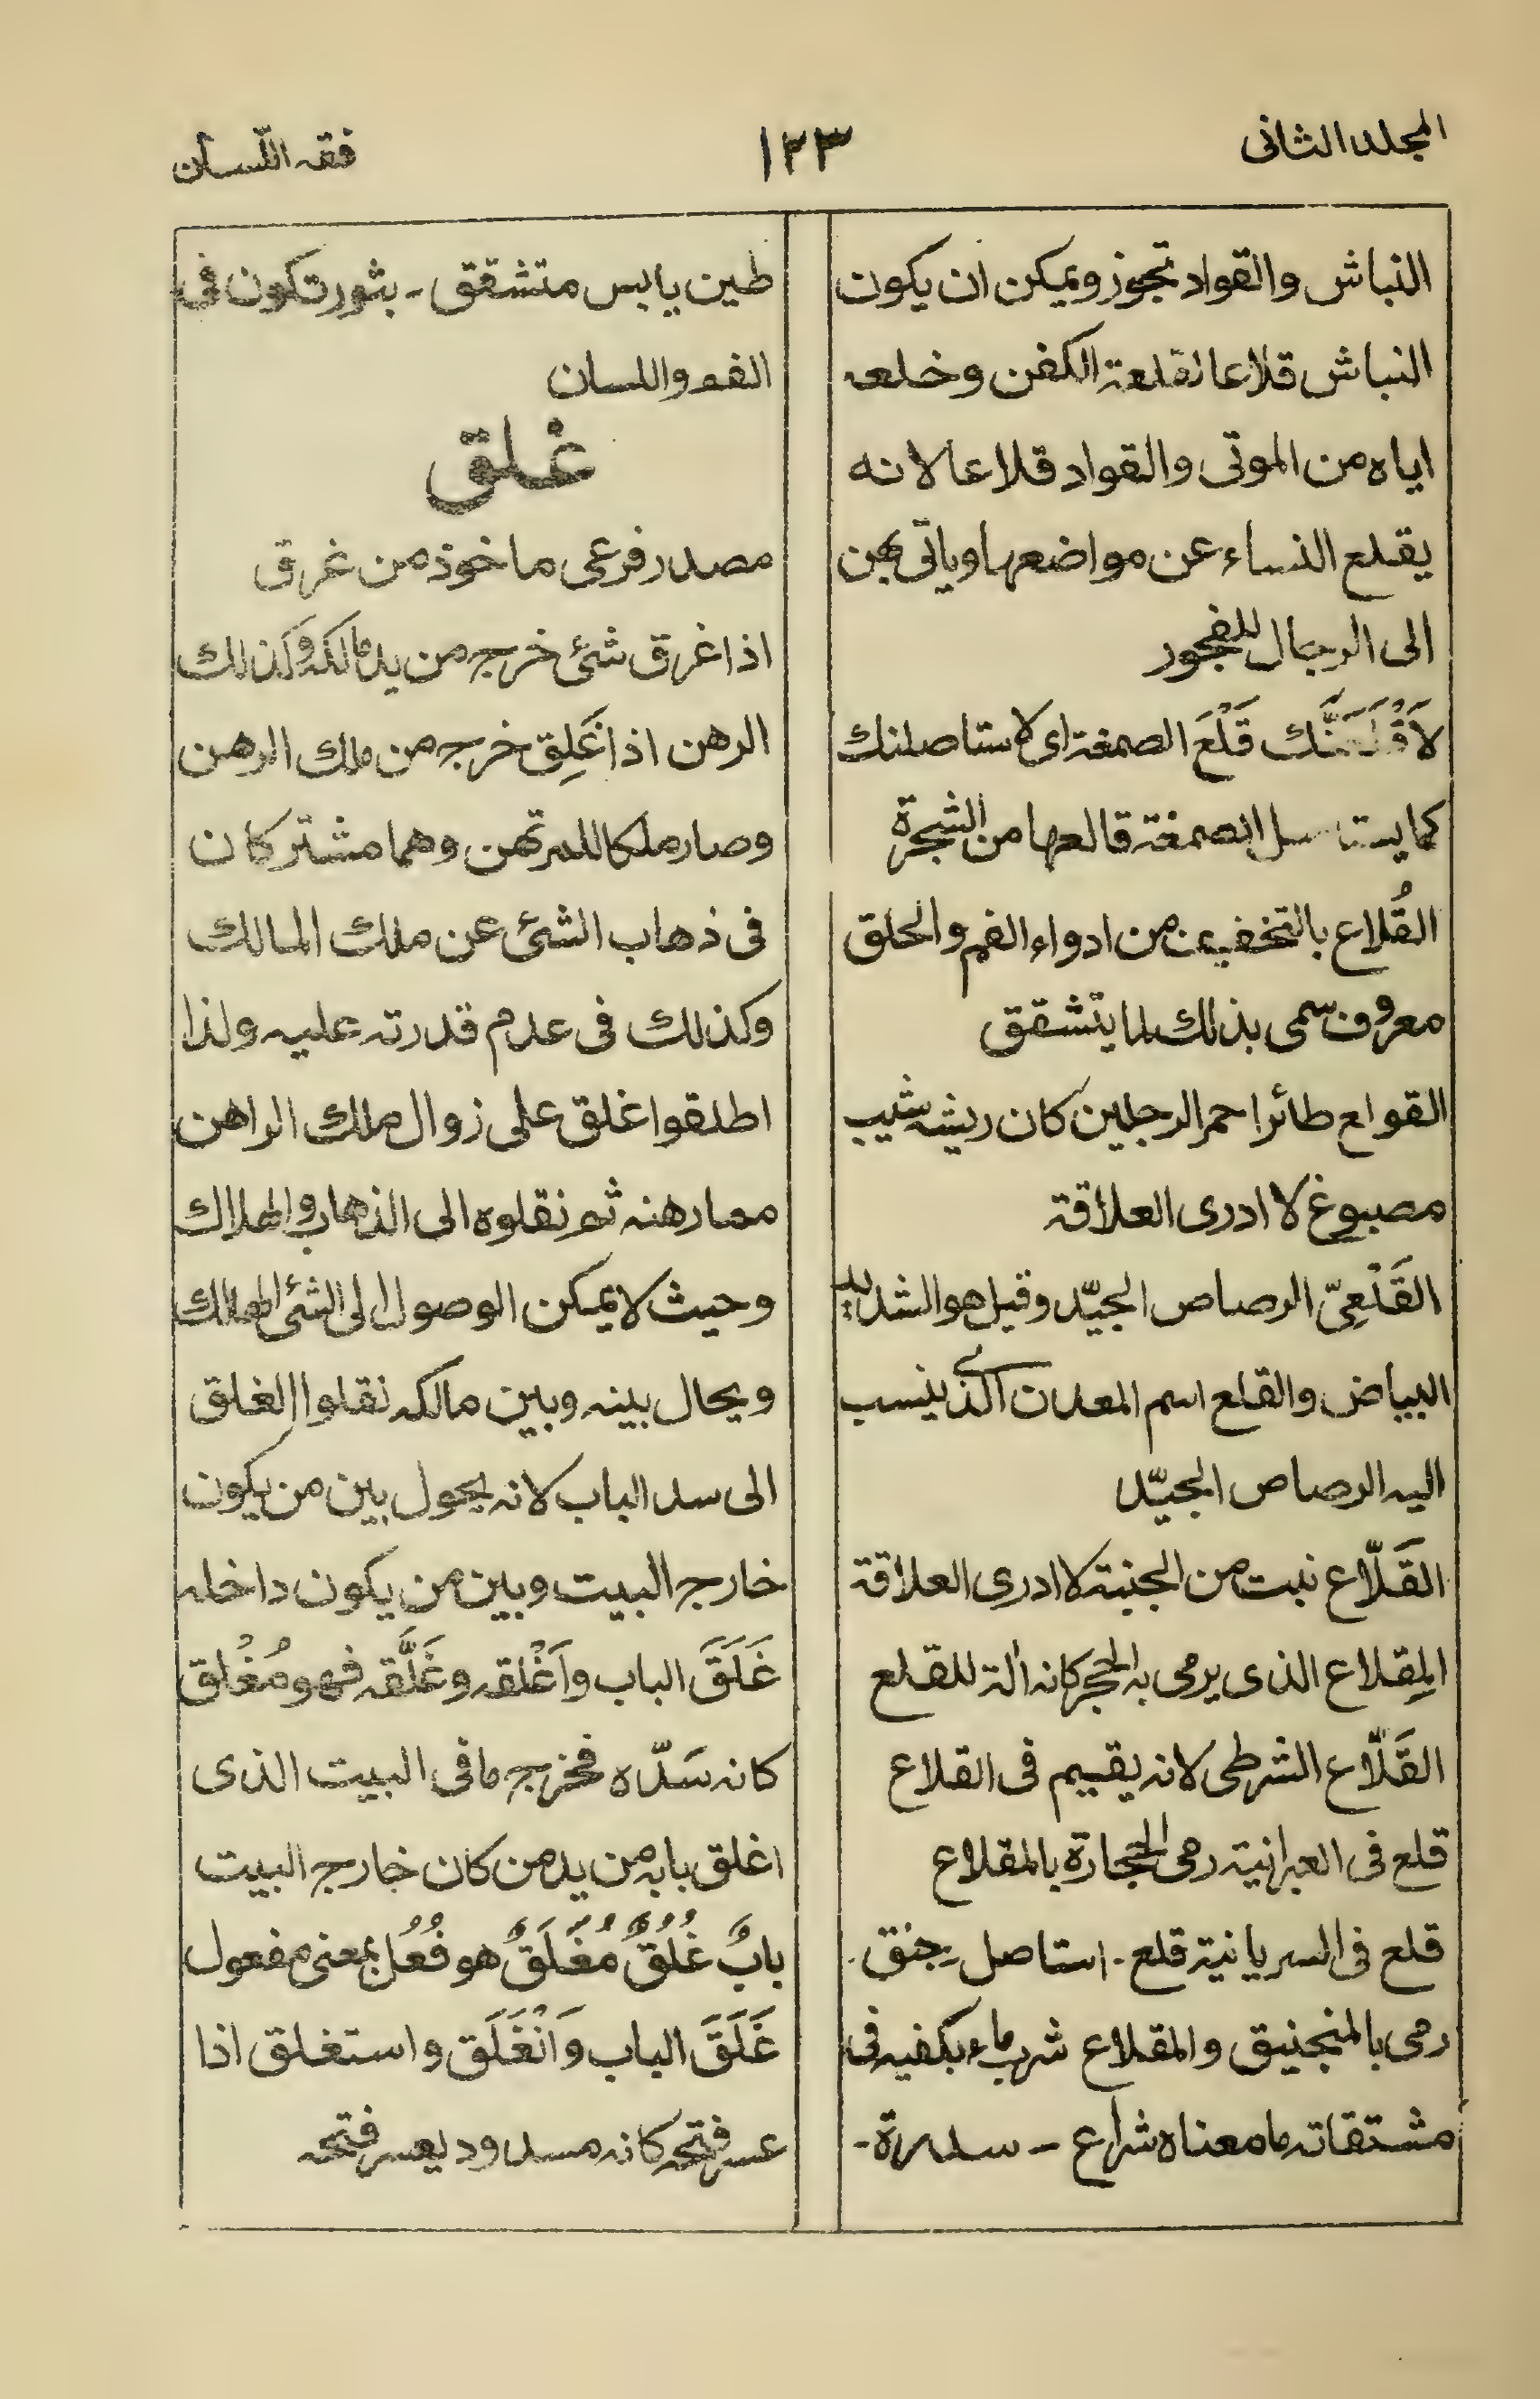 المجلد الثانى
١٣٣
فقه اللّسان
النباش والقواد تجوز ويمكن ان يكون
النباش قلاعا لقلعة الكفن وخلعه
اياه من الموتى والقواد قلاعا لانه
يقلع النساء عن مواضعها وياتى بهن
الى الرجال للفجور
لَاَقْلَعَنَّك قَلْعَ الصمغة اى لاستاصلنك
كما يستاصل الصمغة قالعها من الشجرة
القُلاع بالتخفيف من ادواء الفم والحلق
معروف سمى بذلك لما يتشقق
القواع طائر احمر الرجلين كان ريشه شيب
مصبوغ لا ادرى العلاقة
القَلْعِىّ الرصاص الجيّد وقيل هو الشديد
البياض والقلع اسم المعدن الذى ينسب
اليه الرصاص الجيّد
القَلّاع نبت من الجنبة لا ادرى العلاقة
المِقلاع الذى يرمى به الحجر كانه الة للقلع
القَلّاع الشرطى لانه يقيم فى القلاع
قلع فى العبرانية رمى الحجارة بالمقلاع
قلع فى السريانية قلع - استاصل - جنق
رمى بالمنجنيق والمقلاع شرب ماء بكفيه فى
مشتقاته ما معناه شراع - سدرة -
طين يابس متشقق - بثور تكون فى
الفم واللسان
غلق
مصدر فرعى ماخوذ من غرق
اذا غرق شئ خرج من يد مالكه وكذلك
الرهن اذا غَلِق خرج من ملك الرهن
وصار ملكا للمرتهن وهما مشتركان
فى ذهاب الشئ عن ملك المالك
وكذلك فى عدم قدرته عليه ولذا
اطلقوا غلق على زوال ملك الراهن
مما رهنه ثم نقلوه الى الذهاب والهلاك
وحيث لا يمكن الوصول الى الشئ الهالك
ويحال بينه وبين مالكه نقلوا الغلق
الى سد الباب لانه يحول بين من يكون
خارج البيت وبين من يكون داخله
غَلَقَ الباب واَغْلقه وغَلَّقه فهو مُغْلق
كانه سَدّه فخرج ما فى البيت الذى
اغلق بابه من يد من كان خارج البيت
بابٌ غُلُقٌ مُغْلَقٌ هو فُعُل بمعنى مفعول
غَلَقَ الباب وَانْغَلَق واستغلق اذا
عسر فتحه كانه مسدود يعسر فتحه